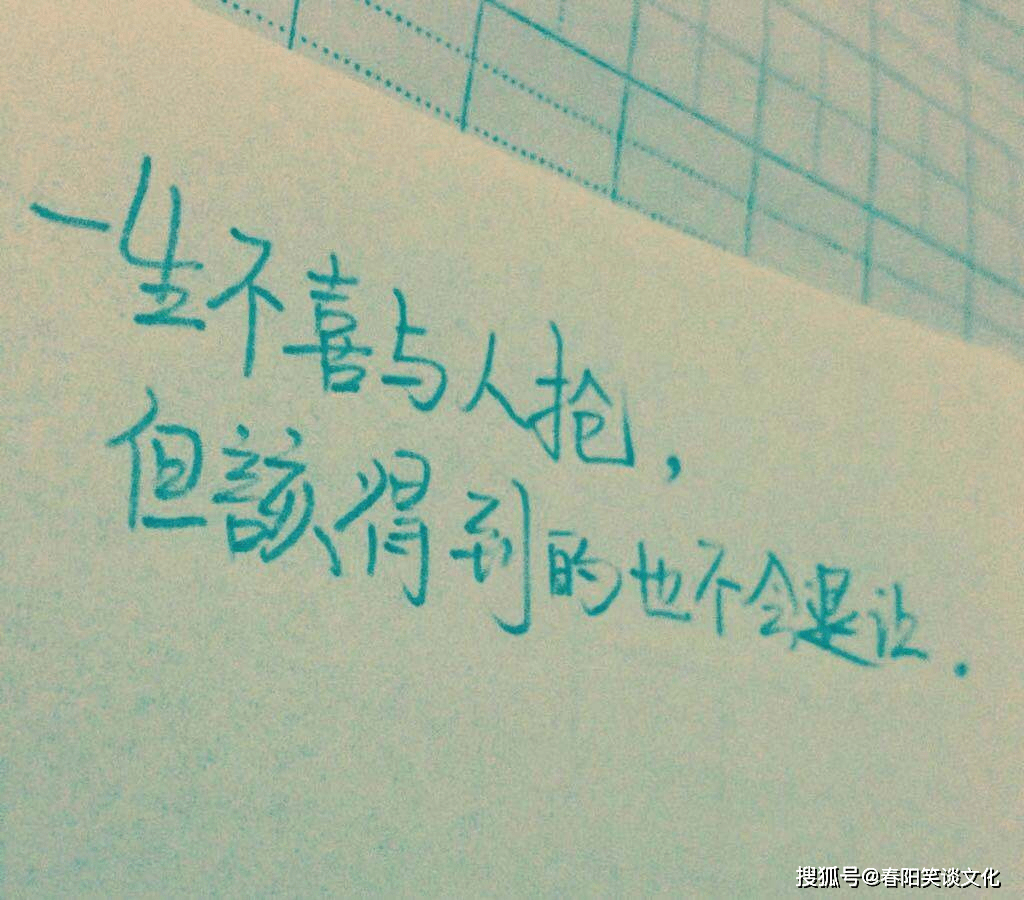 一生不喜与人抢，
但該得到的也不会退让.
搜狐号@春阳笑谈文化